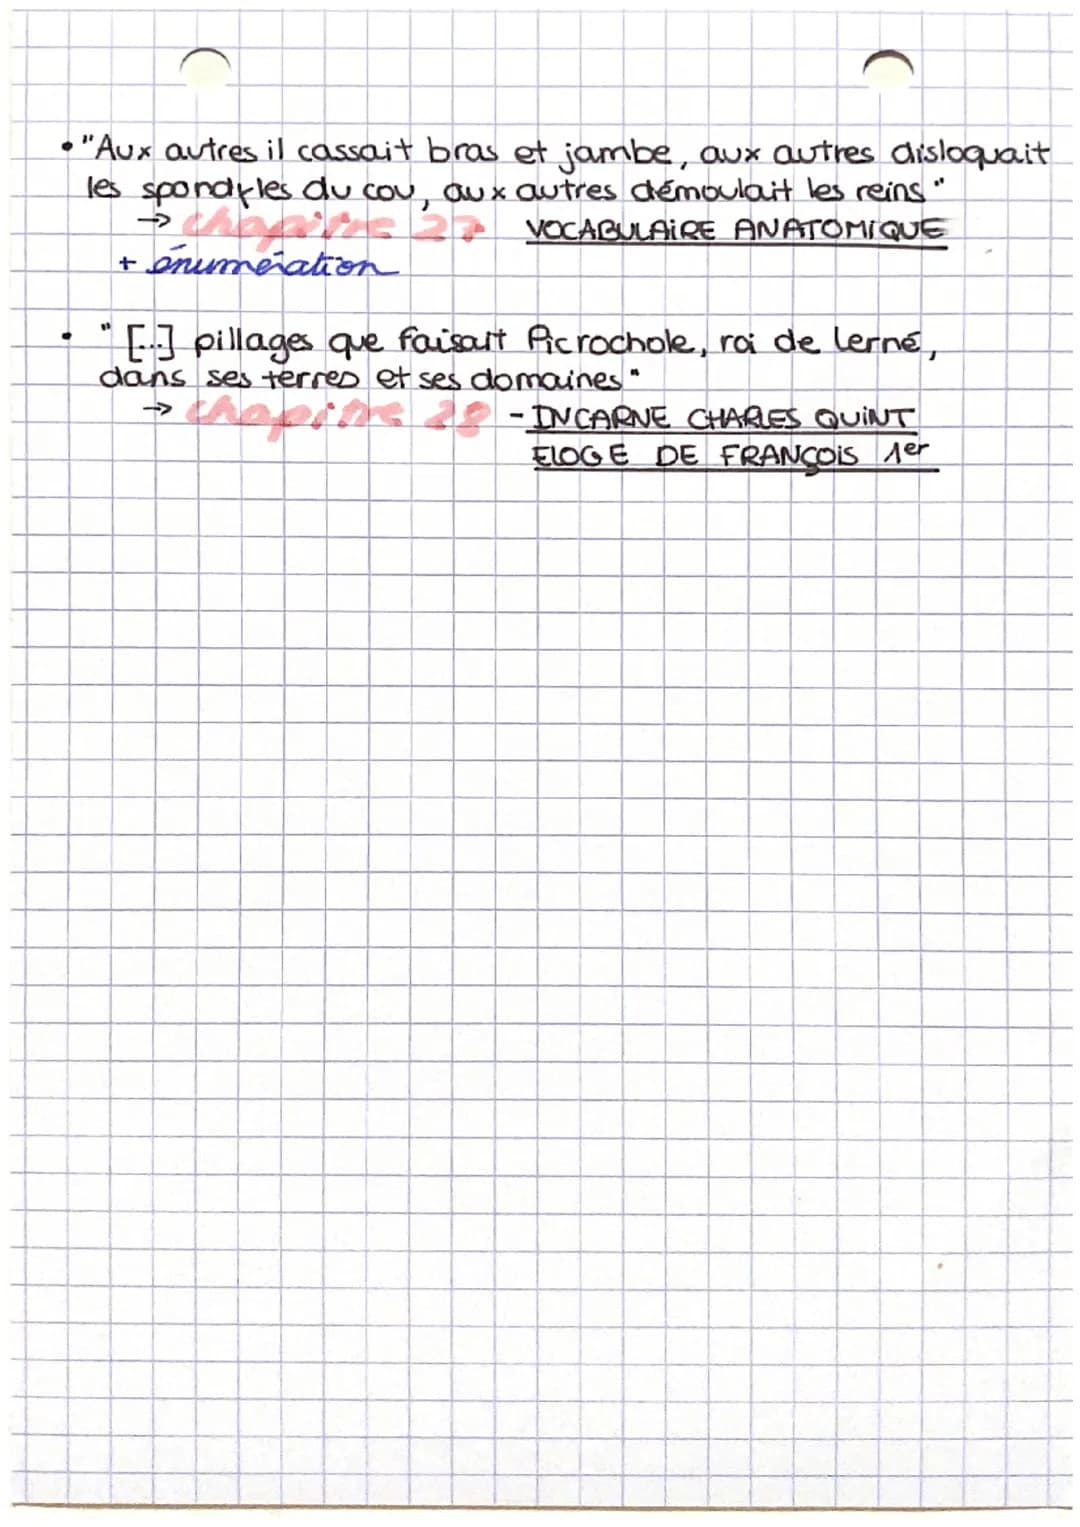 • "Aux autres il cassait bras et jambe, aux autres disloquait
les spondyles du cou, aux autres démoulait les reins"
→ chapitre 27 VOCABULAIRE ANATOMIQUE
+ énumération
• "[...] pillages que faisait Picrochole, roi de Lerné,
dans ses terres et ses domaines"
→ chapitre 28 - INCARNE CHARLES QUINT
ELOGE DE FRANÇOIS 1er